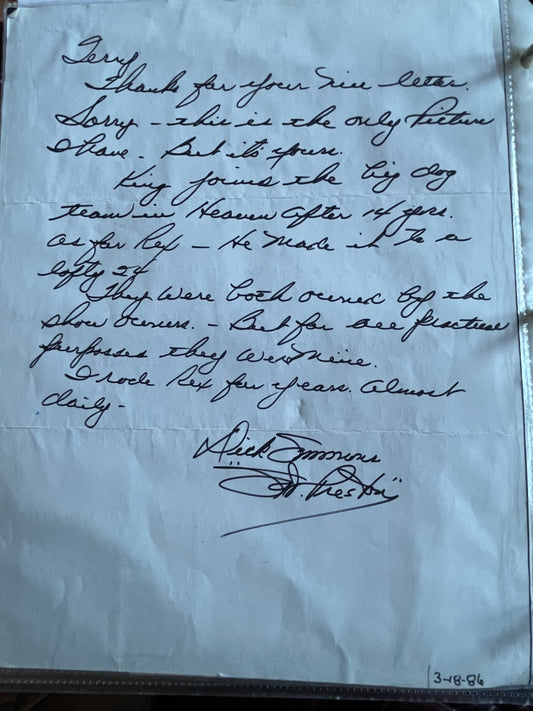 Terry
Thanks for your nice letter.
Sorry - this is the only Picture
I have - But it's yours.
King joined the big dog
team in Heaven after 14 yers.
as for Rex - He made it to a
lofty 24
They were both owned by the
show owners. - But for all practical
purposses they were mine.
I rode Rex for years. Almost
daily -
Dick Simmons
"Sgt. Preston"
3-18-86